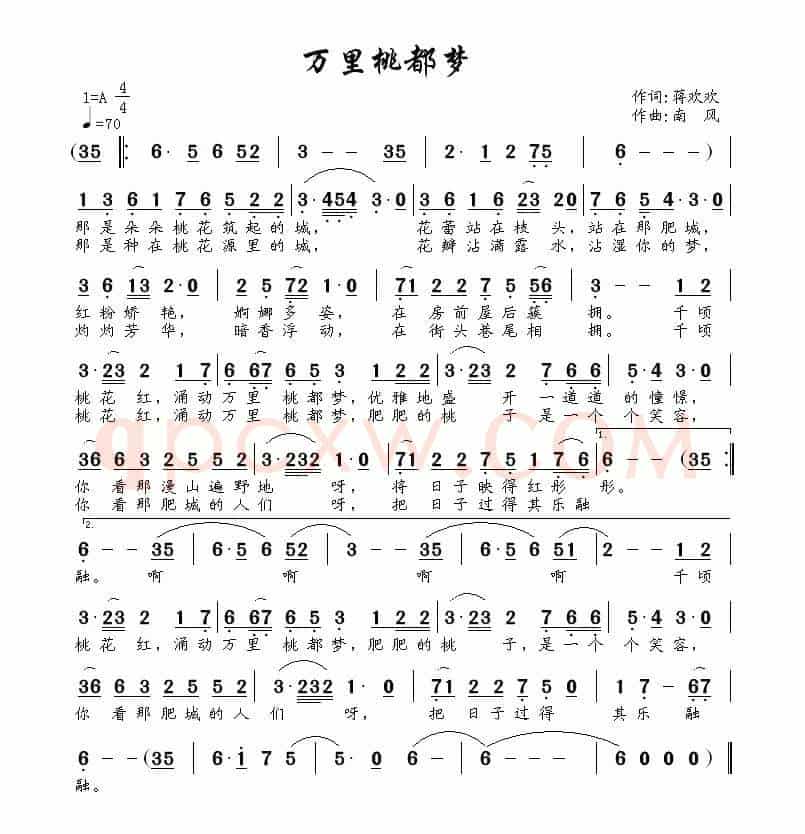 万里桃都梦
1=A 4/4
作词:蒋欢欢
♩=70
作曲:南 风
(35 ‖: 6· 5 6 52 | 3 — — 35 | 2· 1 2 75 | 6 — — ) |
1 3 6 1 7 6 5 2 2 | 3·454 3·0 | 3 6 1 6 23 20 | 7 6 5 4 3·0 |
那是朵朵桃花筑起的城, 花蕾站在枝头,站在那肥城,
那是种在桃花源里的城, 花瓣沾满露水,沾湿你的梦,
3 6 13 2·0 | 2 5 72 1·0 | 71 2 2 7 5 56 | 3· — 1 2 |
红粉娇艳, 婀娜多姿, 在房前屋后簇拥。 千顷
灼灼芳华, 暗香浮动, 在街头巷尾相拥。 千顷
3·23 2 1 7 | 6 67 6 5 3 | 1 2 2 3·23 | 2 7 6 6 | 5·4 3·0 |
桃花红,涌动万里 桃都梦,优雅地盛 开一道道的憧憬,
桃花红,涌动万里 桃都梦,肥肥的桃 子是一个个笑容,
36 6 3 2 5 5 2 | 3·232 1·0 | 71 2 2 7 5 1 7 6 | 1. 6 — — (35 :‖
你看那漫山遍野地 呀, 将日子映得红彤 彤。
你看那肥城的人们 呀, 把日子过得其乐融
2.
6 — — 35 | 6·5 6 52 | 3 — — 35 | 6·5 6 51 | 2 — 1 2 |
融。 啊 啊 啊 啊 千顷
3·23 2 1 7 | 6 67 6 5 3 | 1 2 2 3·23 | 2 7 6 6 | 5·4 3·0 |
桃花红,涌动万里 桃都梦,肥肥的桃 子,是一个个笑容,
36 6 3 2 5 5 2 | 3·232 1·0 | 71 2 2 7 5 0 | 1 7 — 67 |
你看那肥城的人们 呀, 把日子过得 其乐融
6 — (35 | 6·i 7 5 | 5·0 6 — | 6 — — — | 6 0 0 0 ) ‖
融。
qpcxw.COM